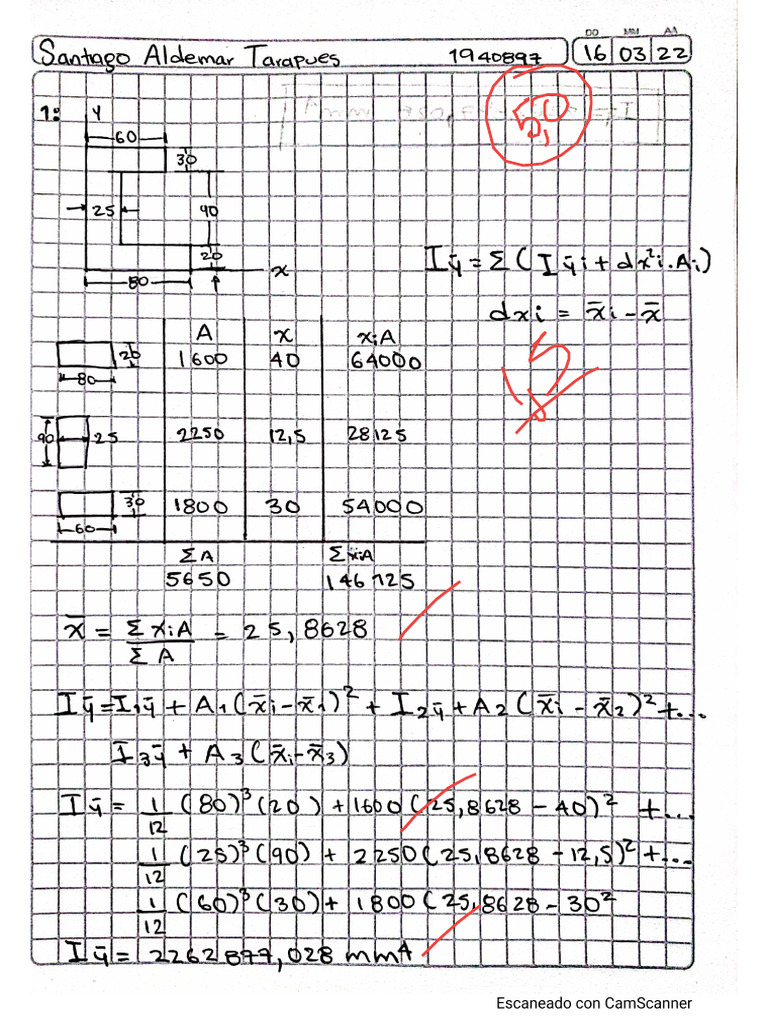 DD MM AA
Santiago Aldemar Tarapues 1940897 16 03 22
5,0
1: y
60
30
25 40
20
x
80
Iȳ = Σ(Iȳi + dx²i.Ai)
dxi = x̄i - x̄
A x xiA
20 1600 40 64000
80
90 25 2250 12,5 28125
30 1800 30 54000
60
ΣA ΣxiA
5650 146125
x̄ = ΣXiA / ΣA = 25,8628
Iȳ = I1ȳ + A1(x̄i - x̄1)² + I2ȳ + A2(x̄i - x̄2)² + ...
I3ȳ + A3(x̄i - x̄3)
Iȳ = 1/12 (80)³(20) + 1600(25,8628 - 40)² + ...
1/12 (25)³(90) + 2250(25,8628 - 12,5)² + ...
1/12 (60)³(30) + 1800(25,8628 - 30²
Iȳ = 2262877,028 mm4
Escaneado con CamScanner